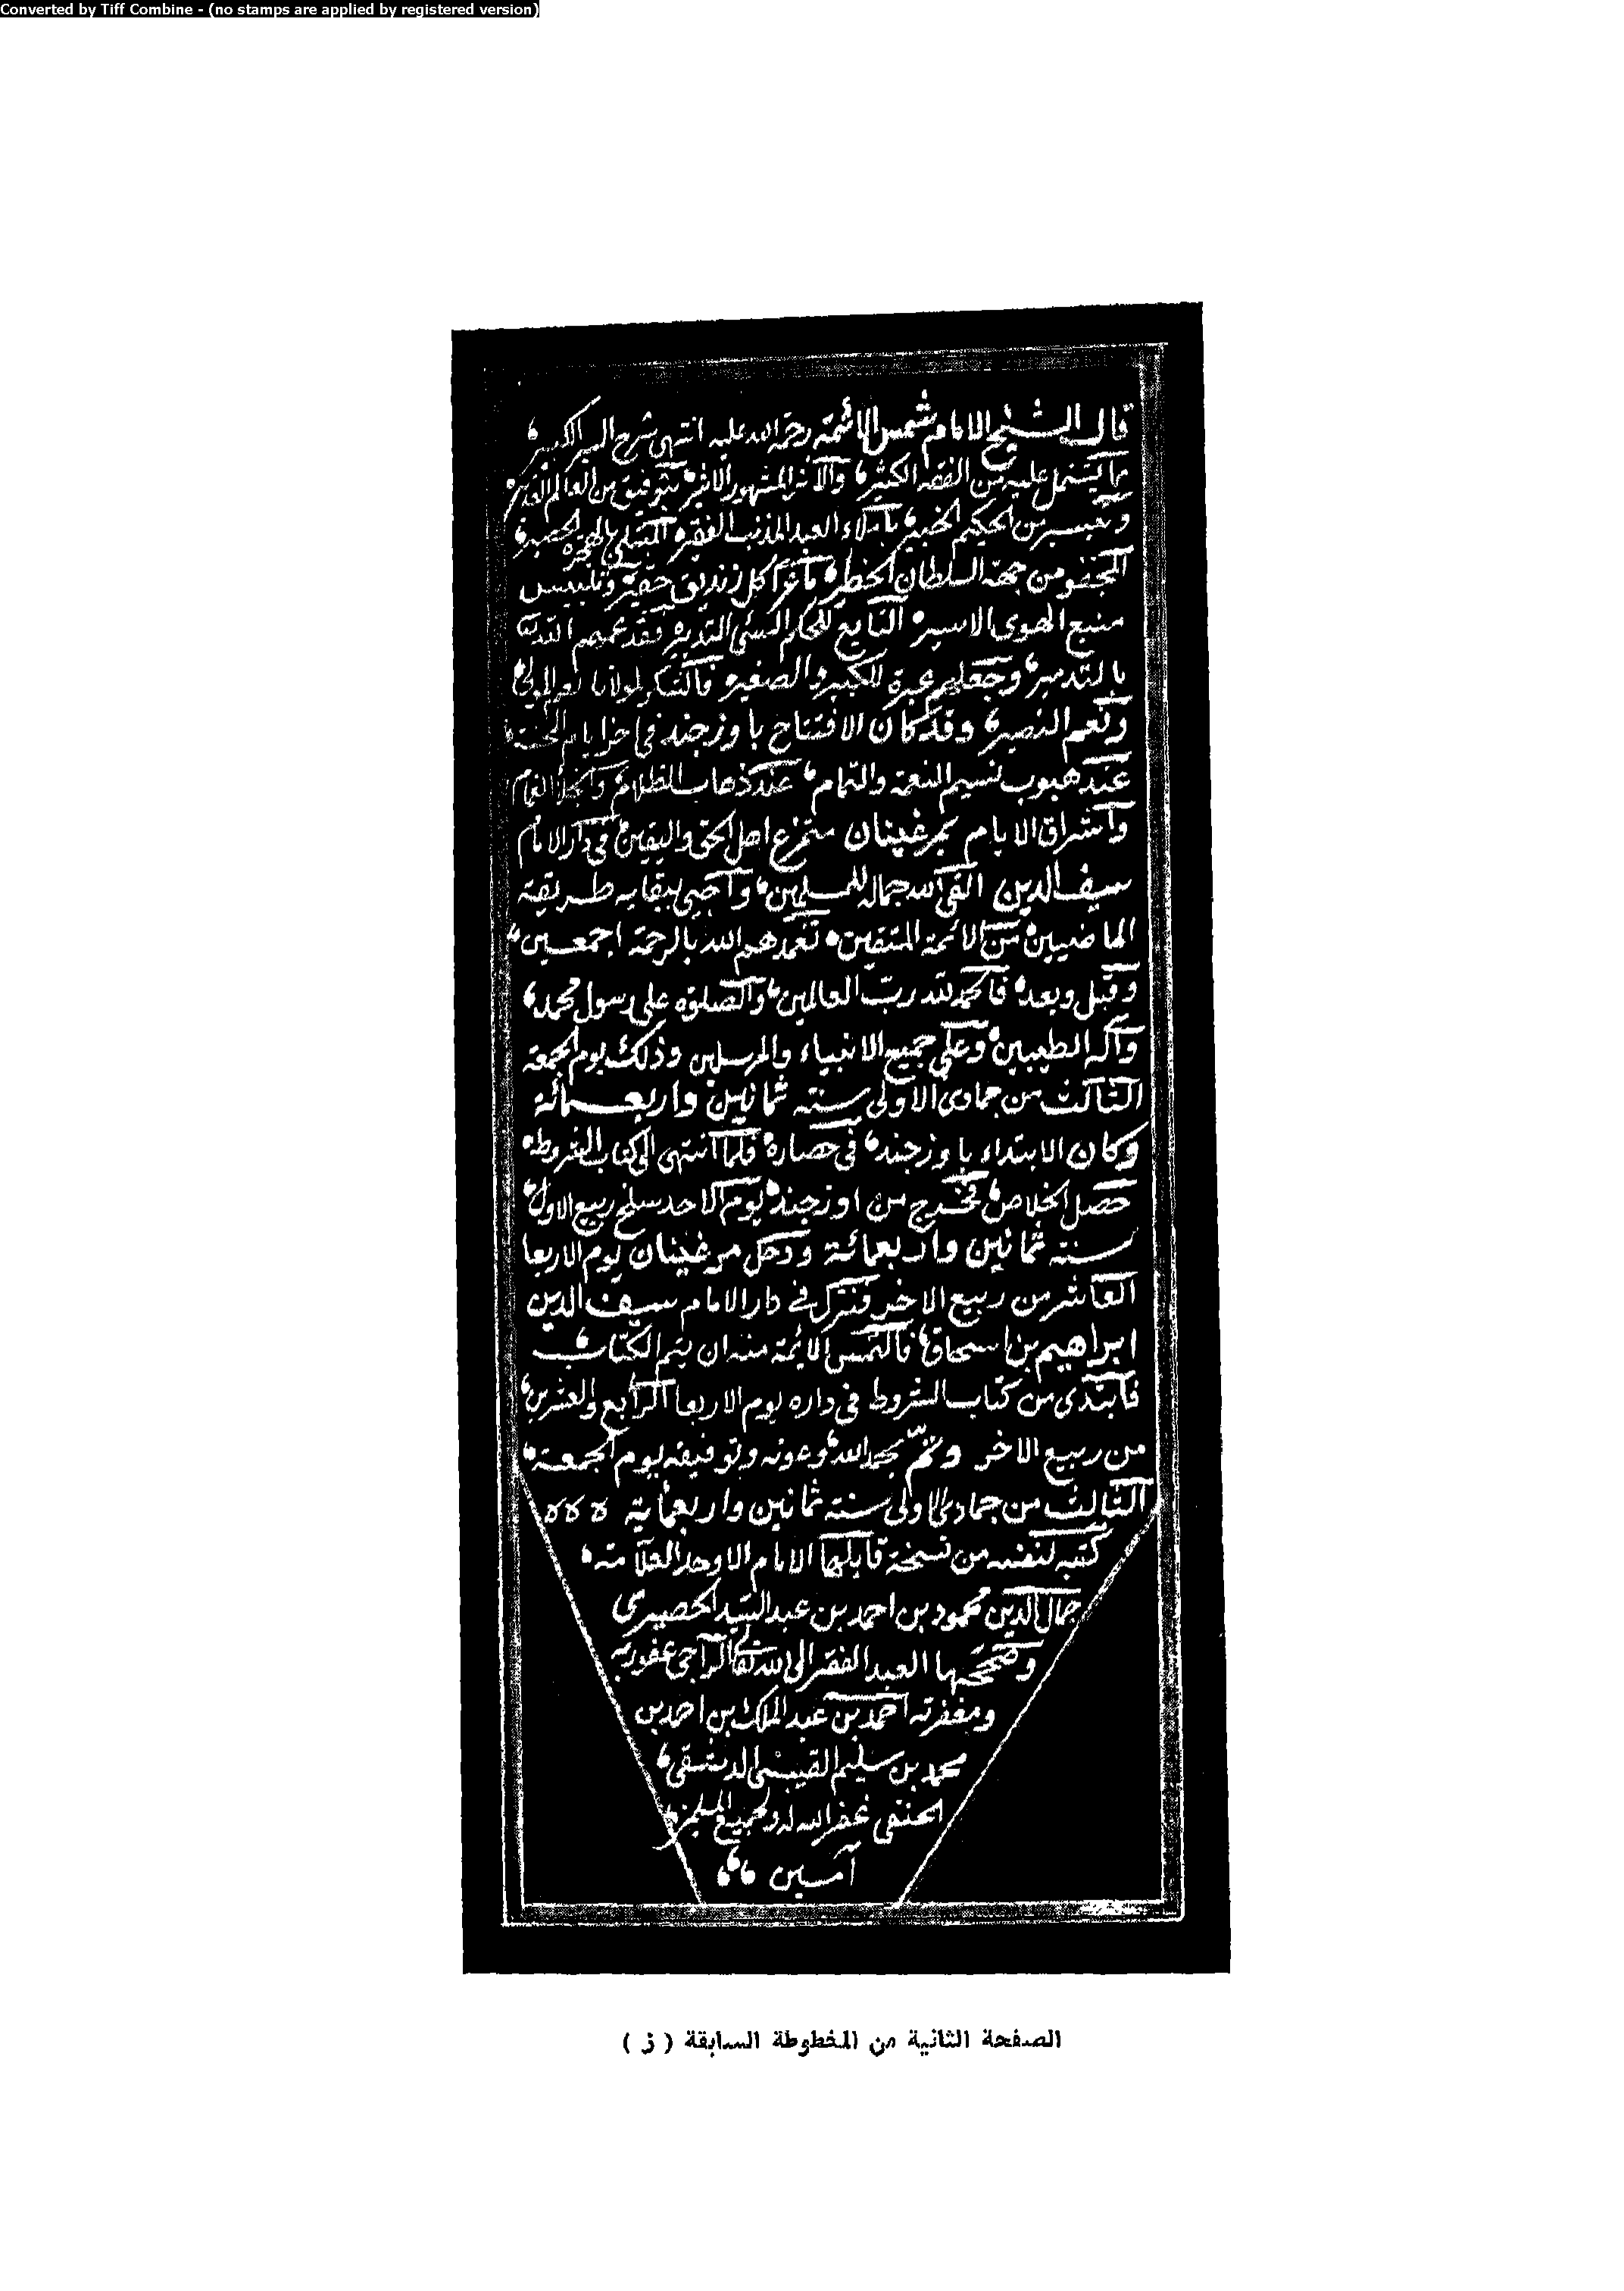 Converted by Tiff Combine - (no stamps are applied by registered version)
قال الشيخ الامام شمس الائمة رحمة الله عليه انتهى شرح السير الكبير
بما يشتمل عليه من الفقه الكثير والآثر المشهور الاثير بتوفيق من العالم القدير
وتيسير من الحكيم الخبير باملاء العبد المذنب الفقير المبتلى بالهجرة الحصير
المجفو من جهة السلطان الخطير باغراء كل زنديق حقير وتلبيس
متبع الهوى الاسير التابع للحاكم السئ التدبير فقد عمهم الله
بالتدمير وجعلهم عبرة للكبير والصغير فالشكر لمولانا نعم المولى
ونعم النصير وقد كان الافتتاح باوزجند في اخر ايام المحنة
عند هبوب نسيم النعمة والتمام عند ذهاب الظلام وانجلاء الغمام
واشراق الايام بمرغينان اهل الحق واليقين في دار الامام
سيف الدين ابقى الله جماله للمسلمين واحيى ببقايه طريقة
الماضيين من الائمة المتقين تغمدهم الله بالرحمة اجمعين
وقبل وبعد فالحمد لله رب العالمين والصلوة على رسول محمد
وآله الطيبين وعلى جميع الانبياء والمرسلين وذلك يوم الجمعة
الثالث من جمادى الاولى سنة ثمانين واربعمائة
وكان الابتداء باوزجند في حصاره فلما انتهى الى كتاب الشروط
حصل الخلاص فخرج من اوزجند يوم الاحد سلخ ربيع الاول
سنة ثمانين واربعمائة ودخل مرغينان يوم الاربعا
العاشر من ربيع الاخر فنزل في دار الامام سيف الدين
ابراهيم بن اسحاق فالتمس الائمة منه ان يتم الكتاب
فابتدى من كتاب الشروط في داره يوم الاربعا الرابع والعشرين
من ربيع الاخر وتم بحمد الله وعونه وتوفيقه يوم الجمعة
الثالث من جمادى الاولى سنة ثمانين واربعماية ه ه ه
كتبه لنفسه من نسخة قابلها الامام الاوحد العلامة
جمال الدين محمود بن احمد بن عبد السيد الحصيري
وصححها العبد الفقير الى الله تعالى الراجي عفو ربه
ومغفرته احمد بن عبد الملك بن احمد بن
محمد بن سليم القيسي الدمشقي
الحنفي غفر الله له ولجميع المسلمين
آمين
الصفحة الثانية من المخطوطة السابقة ( ز )